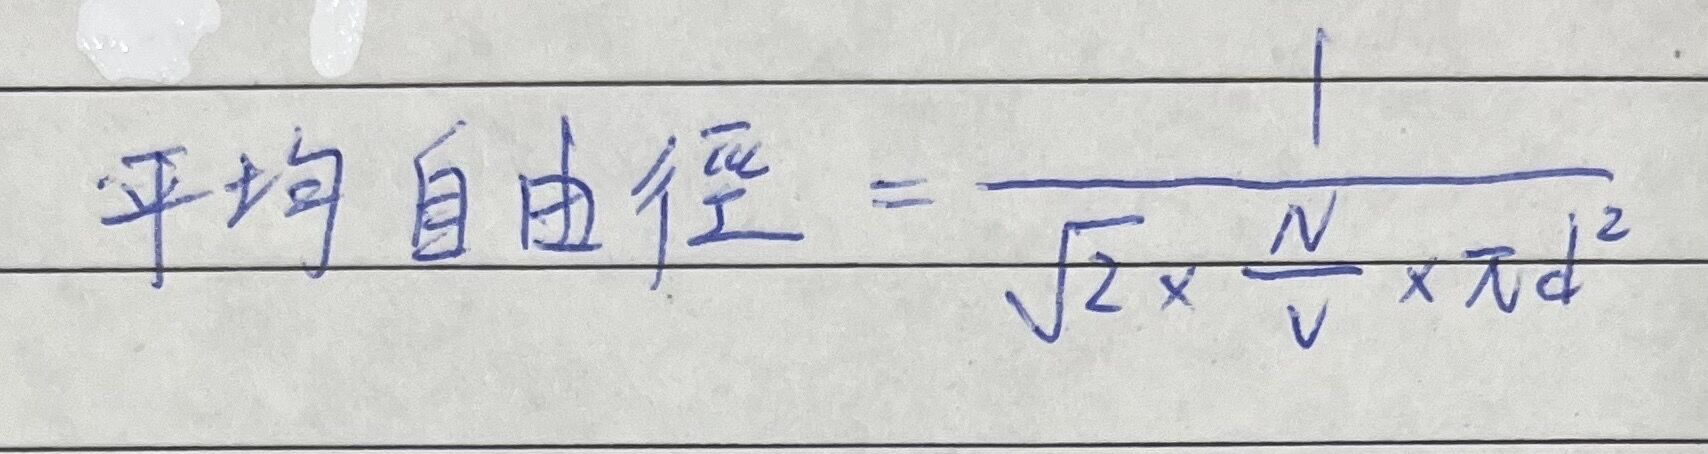 平均自由徑 = \frac{1}{\sqrt{2} × \frac{N}{V} × πd²}